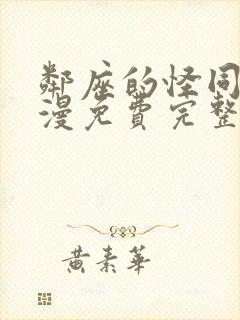 鄰座的怪同
漫免費完整
黃素華